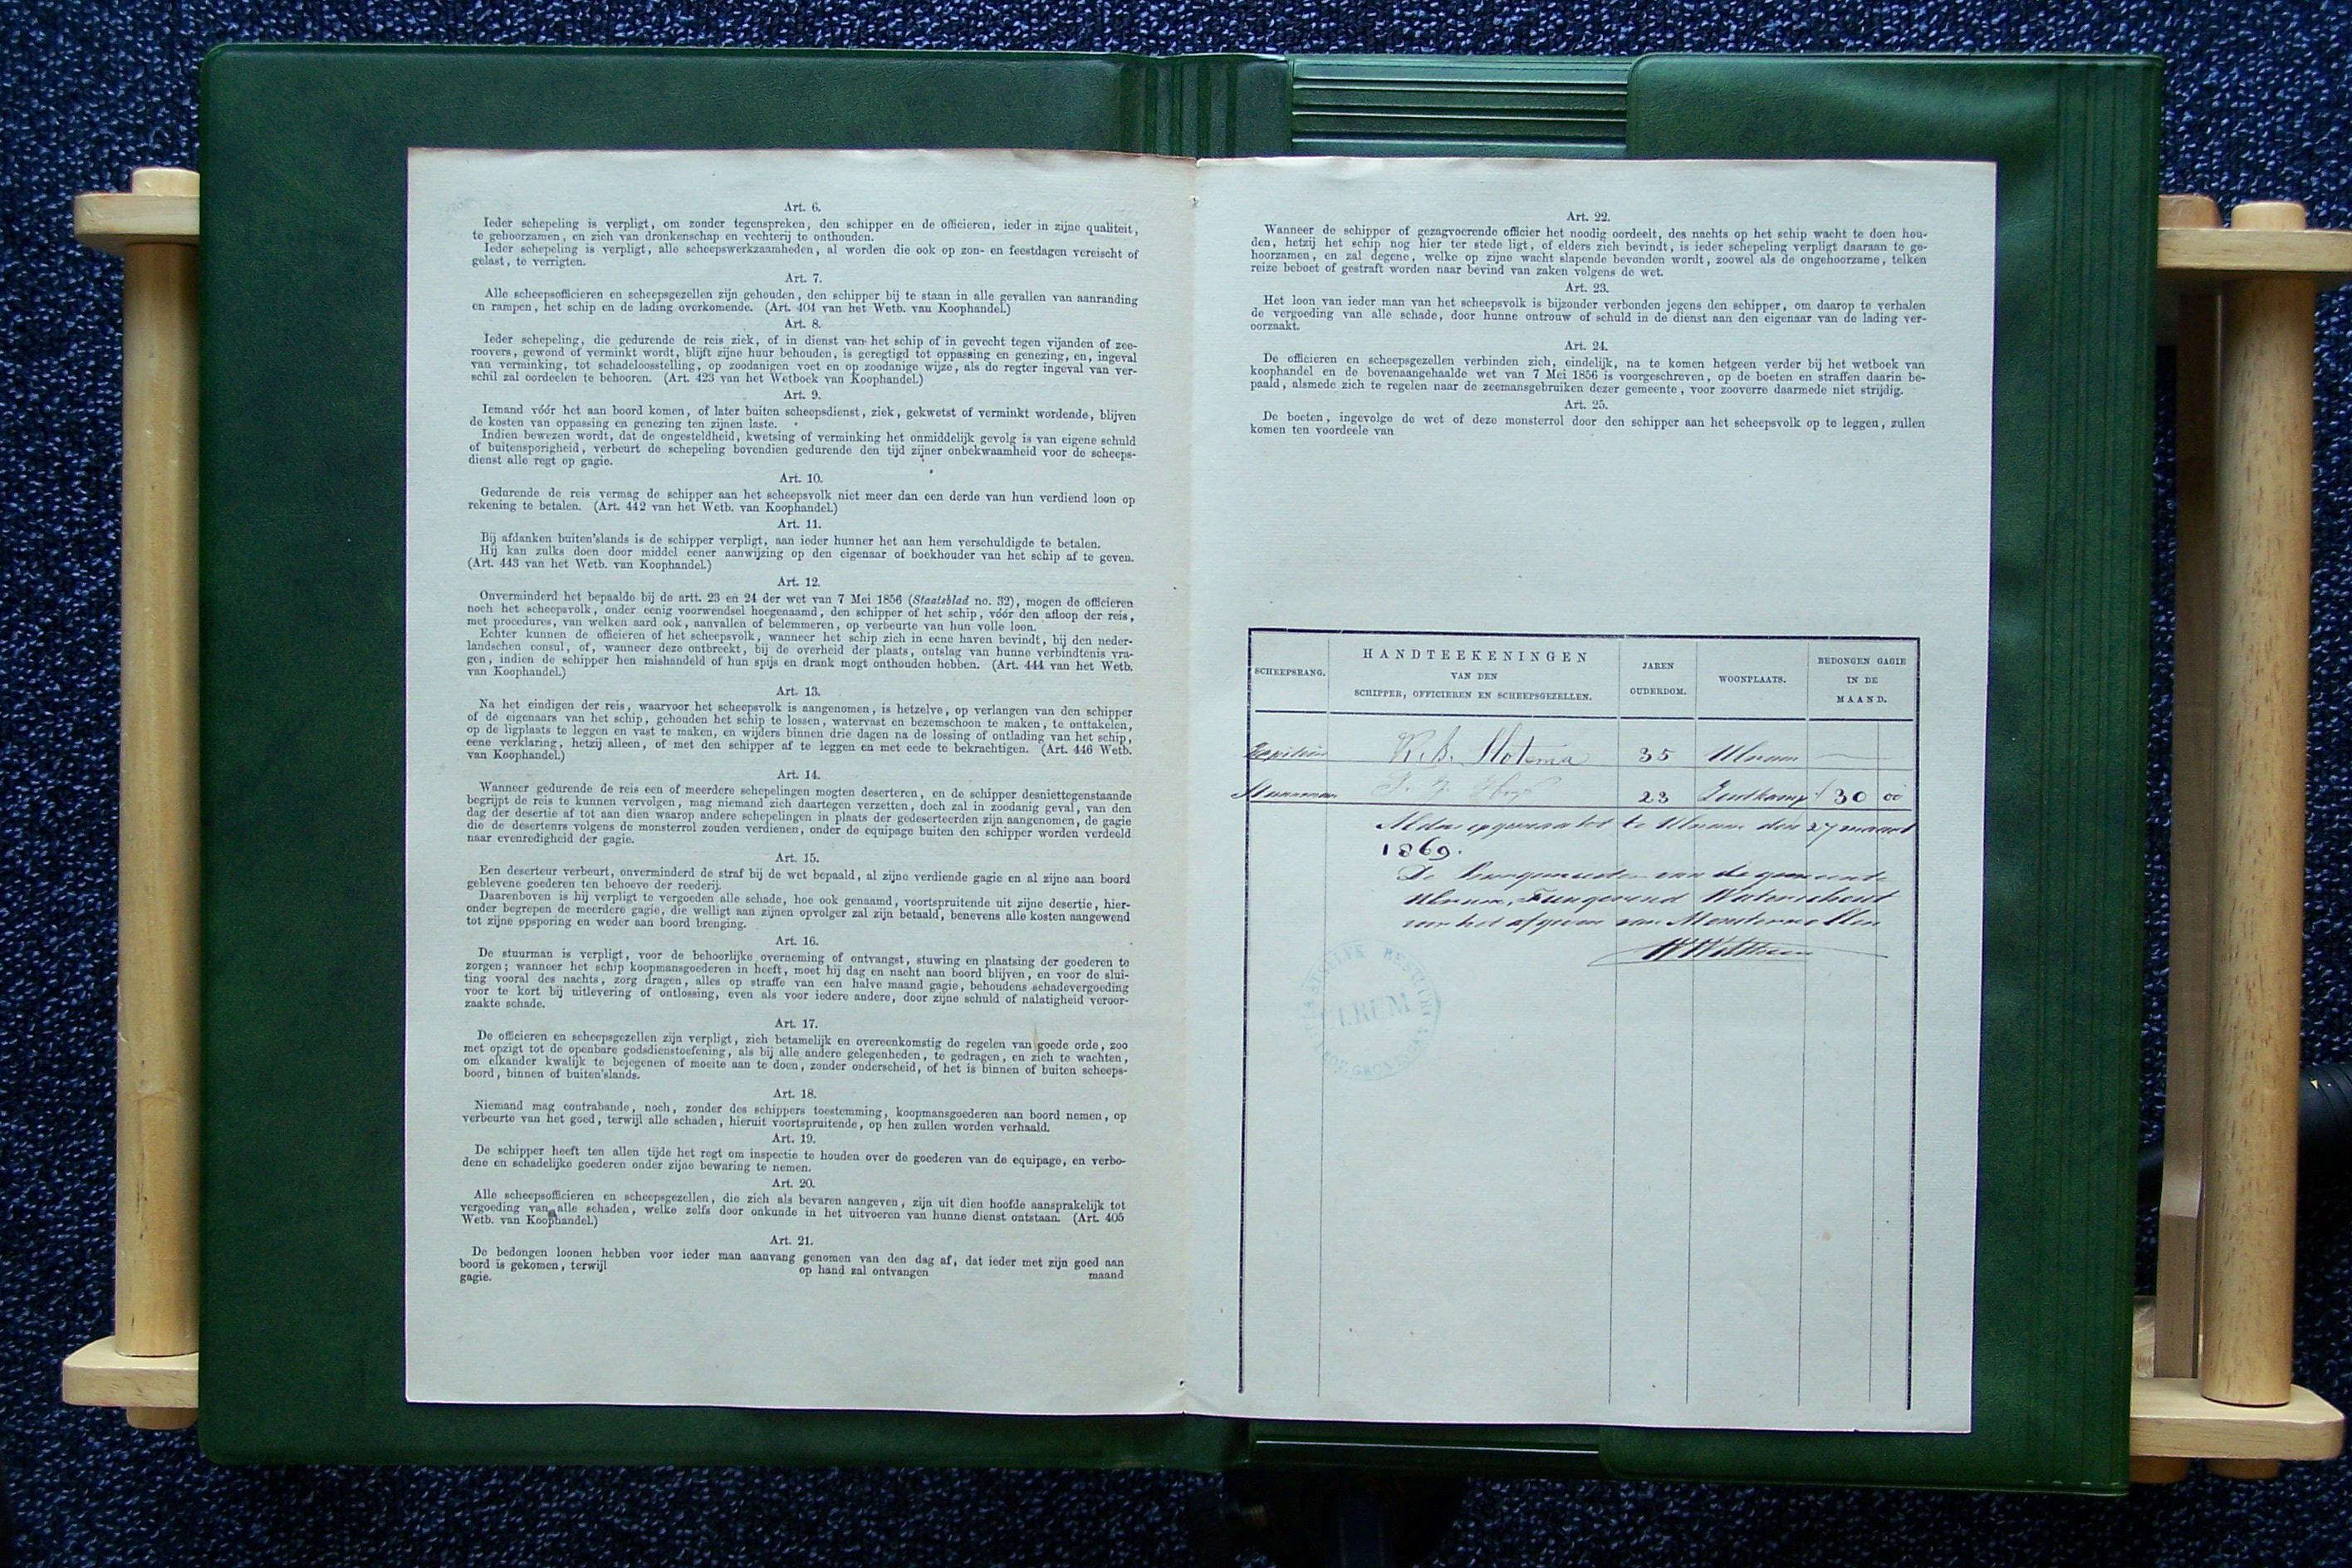 Art. 6.
Ieder schepeling is verpligt, om zonder tegenspreken, den schipper en de officieren, ieder in zijne qualiteit,
te gehoorzamen, en zich van dronkenschap en vechterij te onthouden.
Ieder schepeling is verpligt, alle scheepswerkzaamheden, al worden die ook op zon- en feestdagen vereischt of
gelast, te verrigten.
Art. 7.
Alle scheepsofficieren en scheepsgezellen zijn gehouden, den schipper bij te staan in alle gevallen van aanranding
en rampen, het schip en de lading overkomende. (Art. 404 van het Wetb. van Koophandel.)
Art. 8.
Ieder schepeling, die gedurende de reis ziek, of in dienst van het schip of in gevecht tegen vijanden of zee-
roovers, gewond of verminkt wordt, blijft zijne huur behouden, is geregtigd tot oppassing en genezing, en, ingeval
van verminking, tot schadeloosstelling, op zoodanigen voet en op zoodanige wijze, als de regter ingeval van ver-
schil zal oordeelen te behooren. (Art. 423 van het Wetboek van Koophandel.)
Art. 9.
Iemand vóór het aan boord komen, of later buiten scheepsdienst, ziek, gekwetst of verminkt wordende, blijven
de kosten van oppassing en genezing ten zijnen laste.
Indien bewezen wordt, dat de ongesteldheid, kwetsing of verminking het onmiddelijk gevolg is van eigene schuld
of buitensporigheid, verbeurt de schepeling bovendien gedurende den tijd zijner onbekwaamheid voor de scheeps-
dienst alle regt op gagie.
Art. 10.
Gedurende de reis vermag de schipper aan het scheepsvolk niet meer dan een derde van hun verdiend loon op
rekening te betalen. (Art. 442 van het Wetb. van Koophandel.)
Art. 11.
Bij afdanken buiten'slands is de schipper verpligt, aan ieder hunner het aan hem verschuldigde te betalen.
Hij kan zulks doen door middel eener aanwijzing op den eigenaar of boekhouder van het schip af te geven.
(Art. 443 van het Wetb. van Koophandel.)
Art. 12.
Onverminderd het bepaalde bij de artt. 23 en 24 der wet van 7 Mei 1856 (Staatsblad no. 32), mogen de officieren
noch het scheepsvolk, onder eenig voorwendsel hoegenaamd, den schipper of het schip, vóór den afloop der reis,
met procedures, van welken aard ook, aanvallen of belemmeren, op verbeurte van hun volle loon.
Echter kunnen de officieren of het scheepsvolk, wanneer het schip zich in eene haven bevindt, bij den neder-
landschen consul, of, wanneer deze ontbreekt, bij de overheid der plaats, ontslag van hunne verbindtenis vra-
gen, indien de schipper hen mishandeld of hun spijs en drank mogt onthouden hebben. (Art. 444 van het Wetb.
van Koophandel.)
Art. 13.
Na het eindigen der reis, waarvoor het scheepsvolk is aangenomen, is hetzelve, op verlangen van den schipper
of de eigenaars van het schip, gehouden het schip te lossen, watervast en bezemschoon te maken, te onttakelen,
op de ligplaats te leggen en vast te maken, en wijders binnen drie dagen na de lossing of ontlading van het schip,
eene verklaring, hetzij alleen, of met den schipper af te leggen en met eede te bekrachtigen. (Art. 446 Wetb.
van Koophandel.)
Art. 14.
Wanneer gedurende de reis een of meerdere schepelingen mogten deserteren, en de schipper desniettegenstaande
begrijpt de reis te kunnen vervolgen, mag niemand zich daartegen verzetten, doch zal in zoodanig geval, van den
dag der desertie af tot aan dien waarop andere schepelingen in plaats der gedeserteerden zijn aangenomen, de gagie
die de deserteurs volgens de monsterrol zouden verdienen, onder de equipage buiten den schipper worden verdeeld
naar evenredigheid der gagie.
Art. 15.
Een deserteur verbeurt, onverminderd de straf bij de wet bepaald, al zijne verdiende gagie en al zijne aan boord
geblevene goederen ten behoeve der reederij.
Daarenboven is hij verpligt te vergoeden alle schade, hoe ook genaamd, voortspruitende uit zijne desertie, hier-
onder begrepen de meerdere gagie, die welligt aan zijnen opvolger zal zijn betaald, benevens alle kosten aangewend
tot zijne opsporing en weder aan boord brenging.
Art. 16.
De stuurman is verpligt, voor de behoorlijke overneming of ontvangst, stuwing en plaatsing der goederen te
zorgen; wanneer het schip koopmansgoederen in heeft, moet hij dag en nacht aan boord blijven, en voor de slui-
ting vooral des nachts, zorg dragen, alles op straffe van een halve maand gagie, behoudens schadevergoeding
voor te kort bij uitlevering of ontlossing, even als voor iedere andere, door zijne schuld of nalatigheid veroor-
zaakte schade.
Art. 17.
De officieren en scheepsgezellen zijn verpligt, zich betamelijk en overeenkomstig de regelen van goede orde, zoo
met opzigt tot de openbare godsdienstoefening, als bij alle andere gelegenheden, te gedragen, en zich te wachten,
om elkander kwalijk te bejegenen of moeite aan te doen, zonder onderscheid, of het is binnen of buiten scheeps-
boord, binnen of buiten'slands.
Art. 18.
Niemand mag contrabande, noch, zonder des schippers toestemming, koopmansgoederen aan boord nemen, op
verbeurte van het goed, terwijl alle schaden, hieruit voortspruitende, op hen zullen worden verhaald.
Art. 19.
De schipper heeft ten allen tijde het regt om inspectie te houden over de goederen van de equipage, en verbo-
dene en schadelijke goederen onder zijne bewaring te nemen.
Art. 20.
Alle scheepsofficieren en scheepsgezellen, die zich als bevaren aangeven, zijn uit dien hoofde aansprakelijk tot
vergoeding van alle schaden, welke zelfs door onkunde in het uitvoeren van hunne dienst ontstaan. (Art. 405
Wetb. van Koophandel.)
Art. 21.
De bedongen loonen hebben voor ieder man aanvang genomen van den dag af, dat ieder met zijn goed aan
boord is gekomen, terwijl op hand zal ontvangen maand
gagie.
Art. 22.
Wanneer de schipper of gezagvoerende officier het noodig oordeelt, des nachts op het schip wacht te doen hou-
den, hetzij het schip nog hier ter stede ligt, of elders zich bevindt, is ieder schepeling verpligt daaraan te ge-
hoorzamen, en zal degene, welke op zijne wacht slapende bevonden wordt, zoowel als de ongehoorzame, telken
reize beboet of gestraft worden naar bevind van zaken volgens de wet.
Art. 23.
Het loon van ieder man van het scheepsvolk is bijzonder verbonden jegens den schipper, om daarop te verhalen
de vergoeding van alle schade, door hunne ontrouw of schuld in de dienst aan den eigenaar van de lading ver-
oorzaakt.
Art. 24.
De officieren en scheepsgezellen verbinden zich, eindelijk, na te komen hetgeen verder bij het wetboek van
koophandel en de bovenaangehaalde wet van 7 Mei 1856 is voorgeschreven, op de boeten en straffen daarin be-
paald, alsmede zich te regelen naar de zeemansgebruiken dezer gemeente, voor zooverre daarmede niet strijdig.
Art. 25.
De boeten, ingevolge de wet of deze monsterrol door den schipper aan het scheepsvolk op te leggen, zullen
komen ten voordeele van
SCHEEPSRANG.
HANDTEEKENINGEN
VAN DEN
SCHIPPER, OFFICIEREN EN SCHEEPSGEZELLEN.
JAREN
OUDERDOM.
WOONPLAATS.
BEDONGEN GAGIE
IN DE
MAAND.
Kapitein R. B. Slotema 35 Ulrum
Stuurman 23 Zoutkamp f 30 00
Aldus opgemaakt te Ulrum den 27 maart
1869.
De Burgemeester van de gemeente
Ulrum, Fungerend Waterschout
voor het afgeven van Monsterrollen
BESTUUR
ULRUM
PROV. GRONINGEN